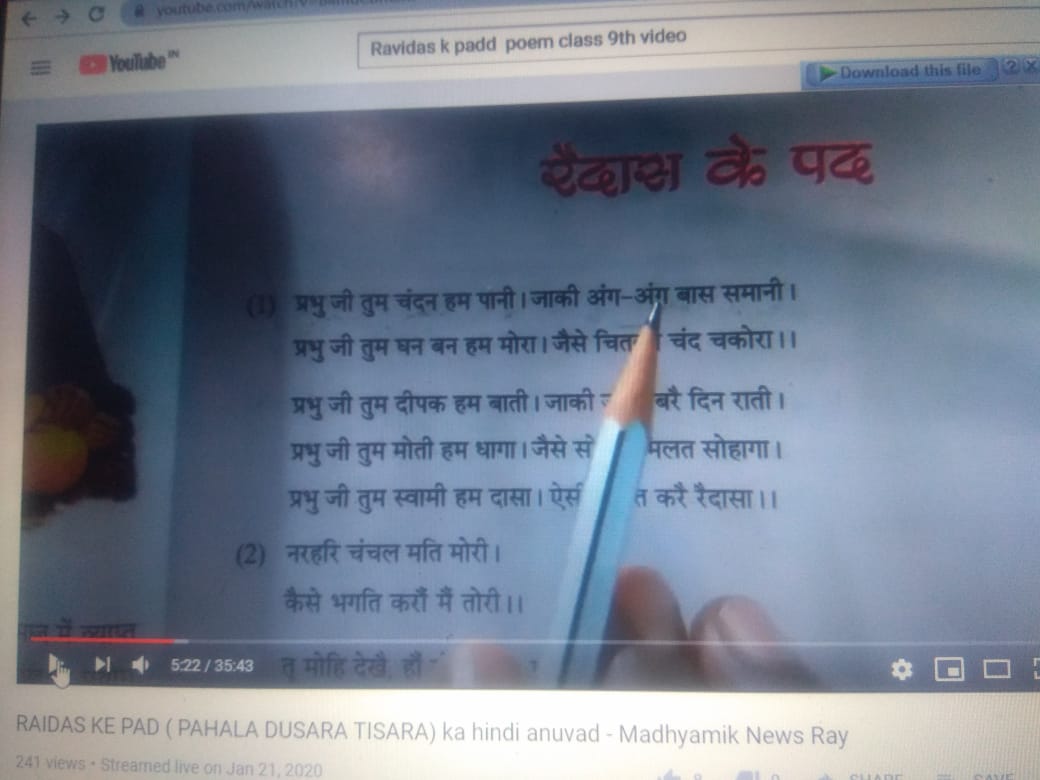 youtube.com/watch?v=
YouTube IN
Ravidas k padd poem class 9th video
Download this file ? X
रैदास के पद
(1) प्रभु जी तुम चंदन हम पानी। जाकी अंग-अंग बास समानी।
प्रभु जी तुम घन बन हम मोरा। जैसे चंद चकोरा।।
प्रभु जी तुम दीपक हम बाती। जाकी बरै दिन राती।
प्रभु जी तुम मोती हम धागा। जैसे सोहागा।
प्रभु जी तुम स्वामी हम दासा। करै रैदासा।।
(2) नरहरि चंचल मति मोरी।
कैसे भगति करौं मैं तोरी।।
में व्याप्त
5:22 / 35:43
तू मोहि देखै, हौं
RAIDAS KE PAD ( PAHALA DUSARA TISARA) ka hindi anuvad - Madhyamik News Ray
241 views • Streamed live on Jan 21, 2020
SHARE SAVE